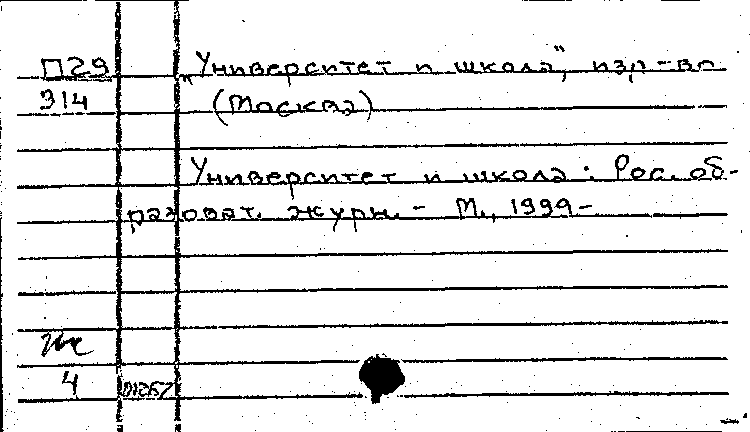 П29 „Университет и школа”, изд-во
314 (Москва)
Университет и школа : Рос. об-
разоват. журн. - М., 1999-
4